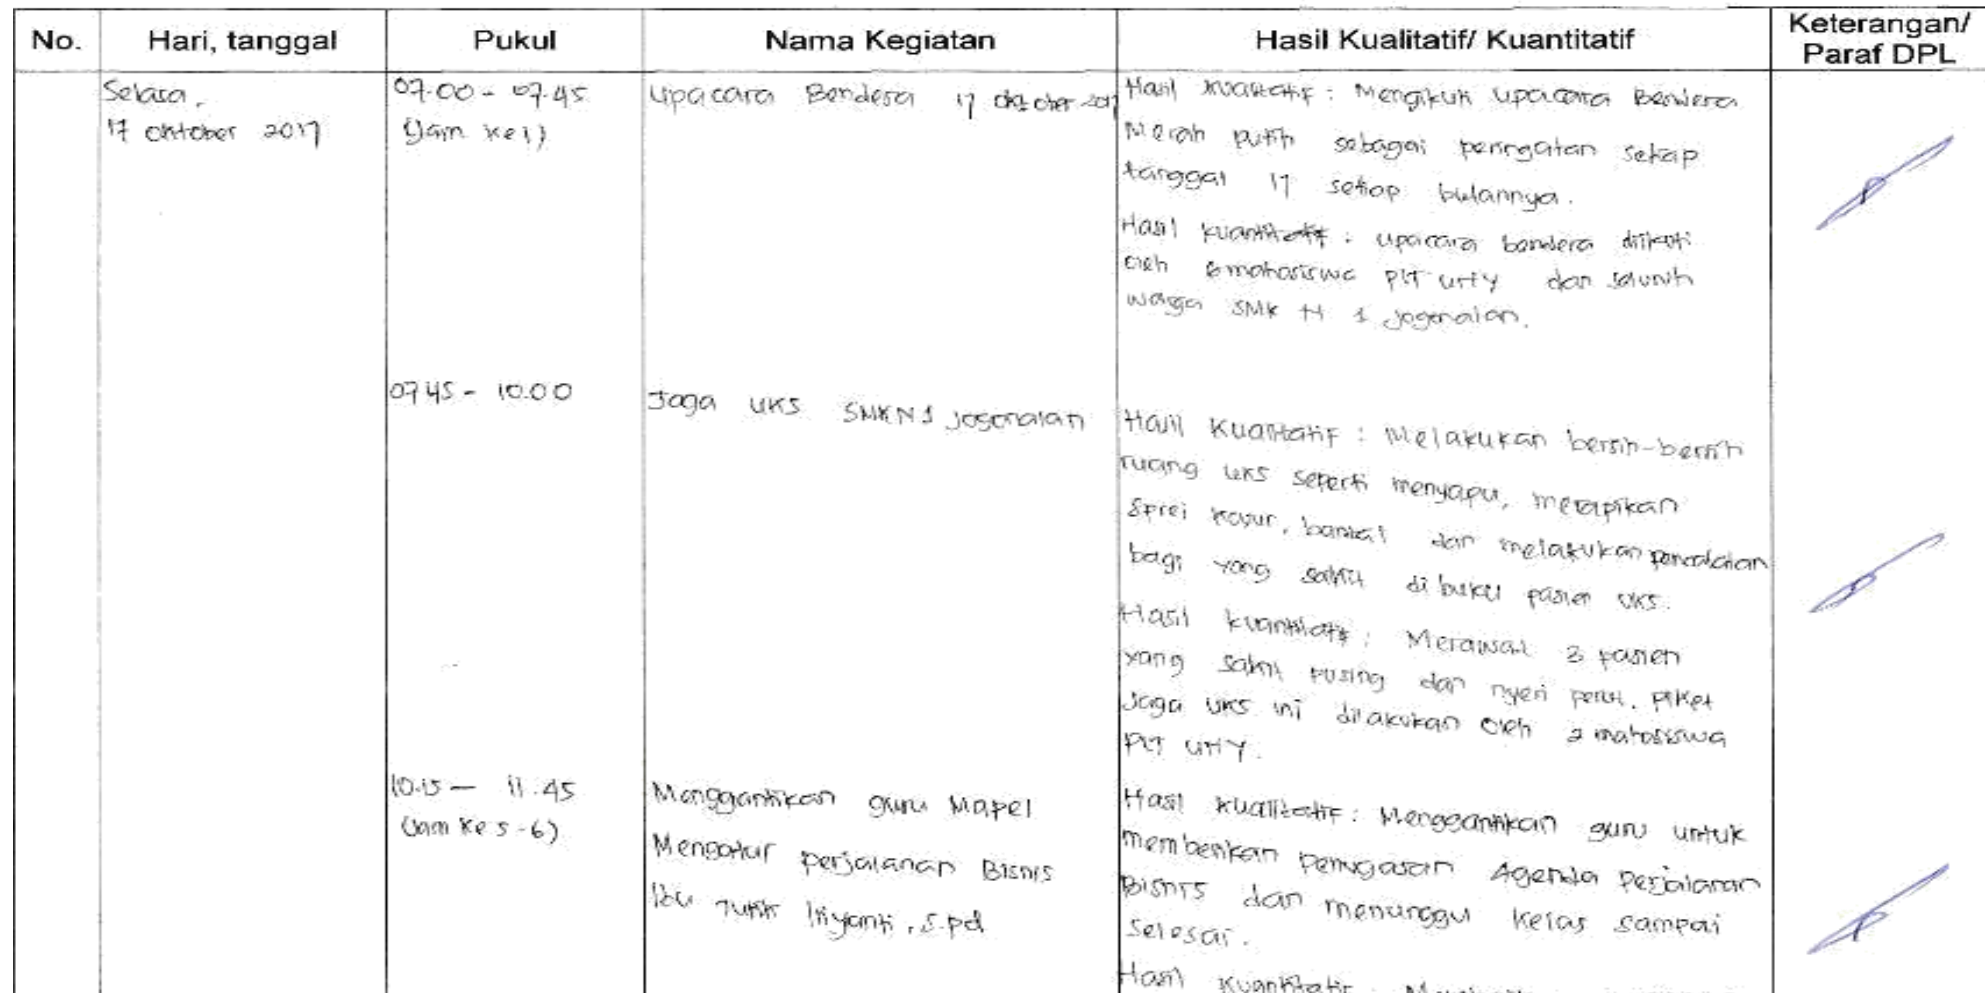 No.
Hari, tanggal
Pukul
Nama Kegiatan
Hasil Kualitatif/ Kuantitatif
Keterangan/
Paraf DPL
Selasa,
17 Oktober 2017
07.00 - 07.45
(Jam ke 1)
Upacara Bendera 17 Oktober 2017
Hasil Kualitatif : Mengikuti Upacara Bendera
Merah Putih sebagai peringatan setiap
tanggal 17 setiap bulannya.
Hasil kuantitatif : upacara bendera diikuti
oleh mahasiswa PLT UNY dan seluruh
warga SMK N 1 Jogonalan.
07.45 - 10.00
Jaga UKS SMKN 1 Jogonalan
Hasil Kualitatif : Melakukan bersih-bersih
ruang UKS seperti menyapu, merapikan
sprei kasur, bantal dan melakukan pendataan
bagi yang sakit di buku pasien UKS.
Hasil kuantitatif : Merawat 3 pasien
yang sakit pusing dan nyeri perut. Piket
Jaga UKS ini dilakukan oleh 2 mahasiswa
PLT UNY.
10.15 — 11.45
(Jam ke 5-6)
Menggantikan guru Mapel
Mengatur perjalanan Bisnis
Ibu Tutik Iriyanti, S.Pd
Hasil Kualitatif : Menggantikan guru untuk
memberikan penugasan Agenda Perjalanan
Bisnis dan menunggu kelas sampai
selesai.
Hasil Kuantitatif :